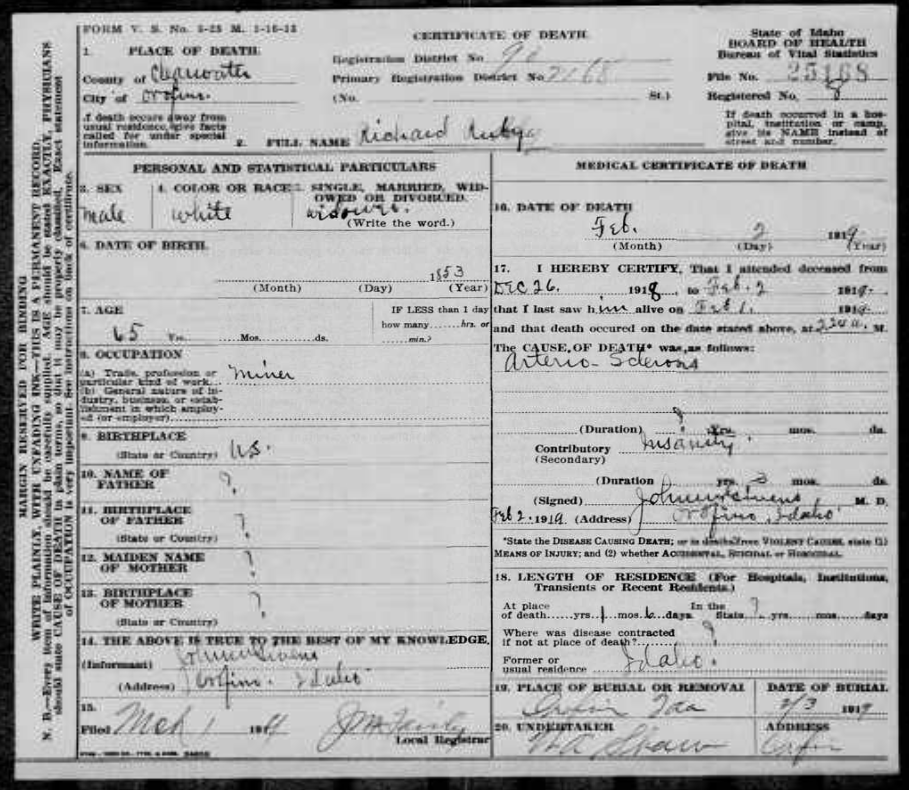 FORM V. S. No. 5-25 M. 1-16-13
CERTIFICATE OF DEATH.
State of Idaho
BOARD OF HEALTH
Bureau of Vital Statistics
1. PLACE OF DEATH.
County of Clearwater
City of Orofino.
If death occurs away from
usual residence, give facts
called for under special
information.
Registration District No 90
Primary Registration District No 2168
(No. St.)
File No. 25168
Registered No. 8
If death occurred in a hos-
pital, institution or camp,
give its NAME instead of
street and number.
2. FULL NAME Richard
PERSONAL AND STATISTICAL PARTICULARS
3. SEX
male
4. COLOR OR RACE
white
5. SINGLE, MARRIED, WID-
OWED OR DIVORCED.
(Write the word.)
6. DATE OF BIRTH.
1853
(Month) (Day) (Year)
7. AGE
65 Yrs. Mos. ds.
IF LESS than 1 day
how many hrs. or
min.?
8. OCCUPATION
(a) Trade, profession or
particular kind of work miner
(b) General nature of in-
dustry, business, or estab-
lishment in which employ-
ed (or employer)
9. BIRTHPLACE
(State or Country) U.S.
10. NAME OF
FATHER ?
11. BIRTHPLACE
OF FATHER ?
(State or Country)
12. MAIDEN NAME
OF MOTHER ?
13. BIRTHPLACE
OF MOTHER ?
(State or Country)
14. THE ABOVE IS TRUE TO THE BEST OF MY KNOWLEDGE,
(Informant)
(Address) Orofino. Idaho
15.
Filed Mch 1 191
Local Registrar
MEDICAL CERTIFICATE OF DEATH
16. DATE OF DEATH
Feb. 2 1919
(Month) (Day) (Year)
17. I HEREBY CERTIFY, That I attended deceased from
Dec 26. 1918 to Feb. 2 1919.
that I last saw him alive on Feb 1. 1919.
and that death occured on the date stated above, at 2 M.
The CAUSE OF DEATH* was as follows:
Arterio-Sclerosis
(Duration) ? yrs. mos. ds.
Contributory Insanity.
(Secondary)
(Duration) yrs. 3 mos. ds.
(Signed) M. D.
Feb 2. 1919 (Address) Orofino, Idaho
*State the DISEASE CAUSING DEATH; or in deaths from VIOLENT CAUSES, state (1)
MEANS OF INJURY; and (2) whether ACCIDENTAL, SUICIDAL or HOMICIDAL.
18. LENGTH OF RESIDENCE (For Hospitals, Institutions,
Transients or Recent Residents.)
At place
of death yrs. 1 mos. 6 days
In the
State ? yrs. mos. days
Where was disease contracted
if not at place of death? ?
Former or
usual residence Idaho.
19. PLACE OF BURIAL OR REMOVAL
DATE OF BURIAL
2/3 1919
20. UNDERTAKER
ADDRESS
MARGIN RESERVED FOR BINDING
WRITE PLAINLY, WITH UNFADING INK—THIS IS A PERMANENT RECORD.
N. B.—Every item of information should be carefully supplied. AGE should be stated EXACTLY, PHYSICIANS
should state CAUSE OF DEATH in plain terms, so that it may be properly classified. Exact statement
of OCCUPATION is very important. See instructions on back of certificate.